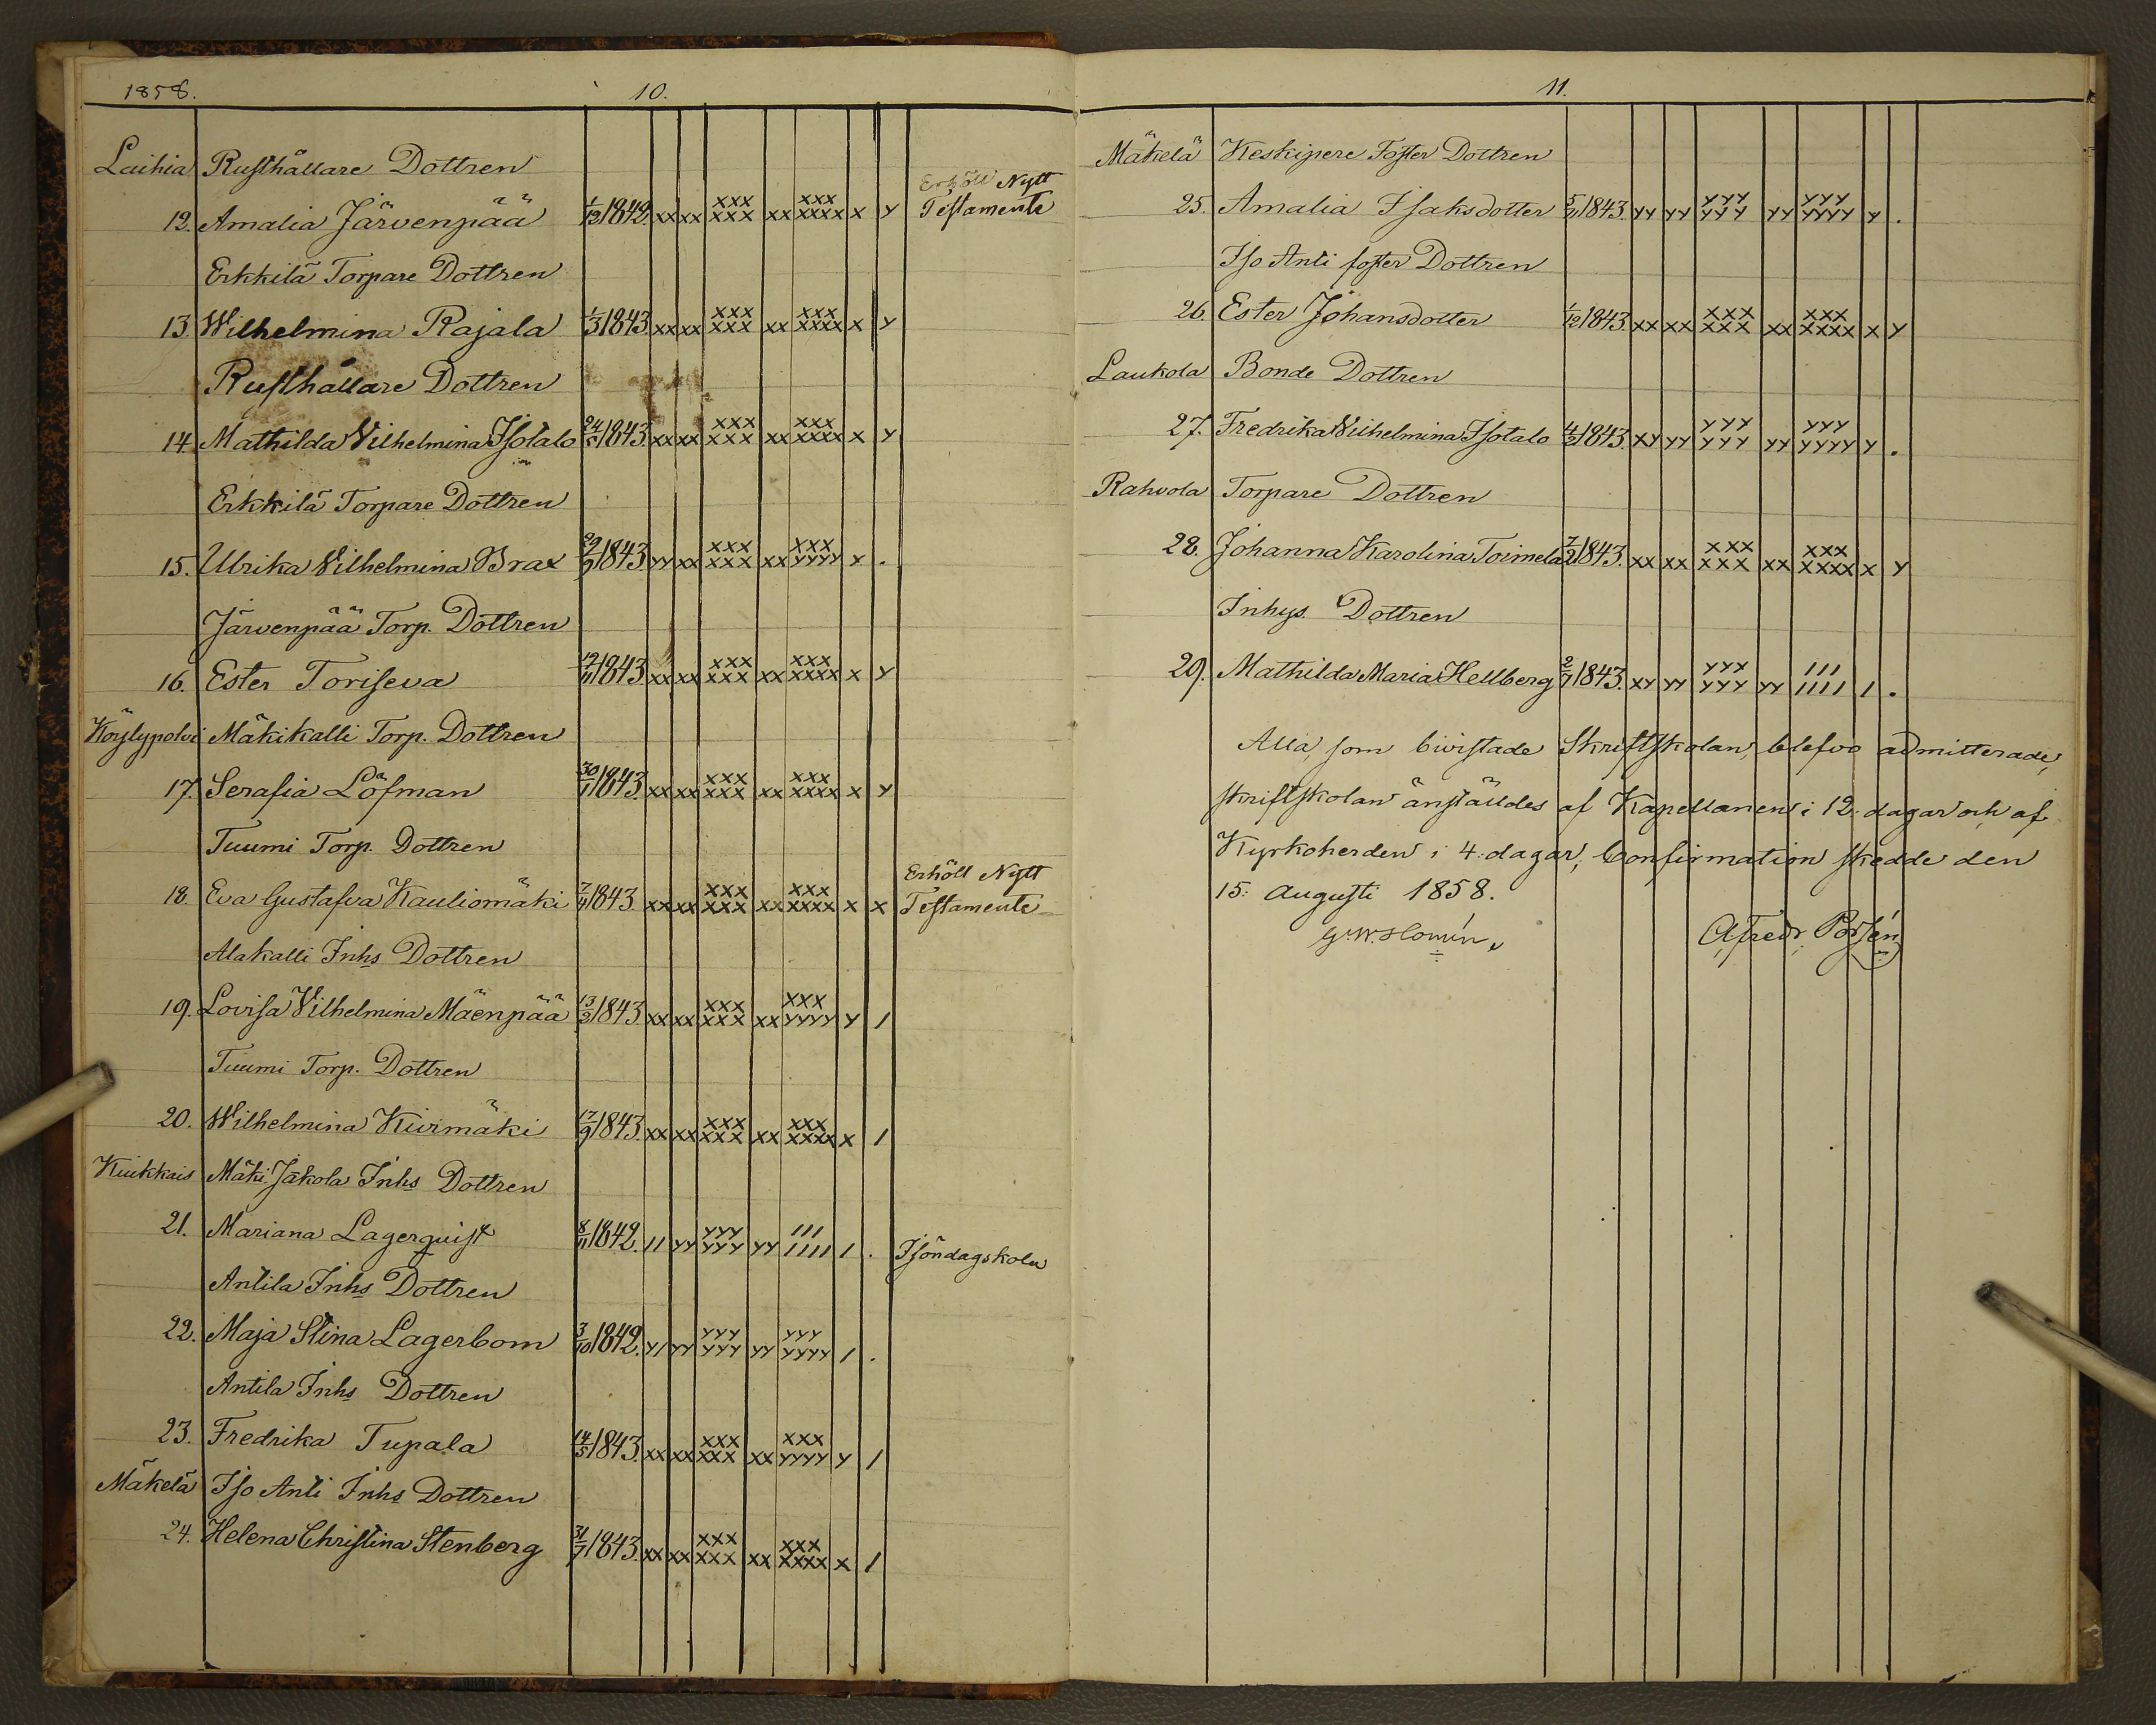 1858. 10.
Laihia Rusthållare Dottren
12. Amalia Järvenpää 1/12 1842. xx xx xxx xxx xx xxx xxxx x y Erhöll Nytt Testamente
Erkkilä Torpare Dottren
13. Wilhelmina Rajala 1/3 1843 xx xx xxx xxx xx xxx xxxx x y
Rusthållare Dottren
14. Mathilda Vilhelmina Isotalo 24/5 1843 xx xx xxx xxx xx xxx xxxx x y
Erkkilä Torpare Dottren
15. Ulrika Vilhelmina Brax 29/9 1843 yy xx xxx xxx xx xxx yyyy x .
Järvenpää Torp. Dottren
16. Ester Toriseva 12/11 1843 xx xx xxx xxx xx xxx xxxx x y
Köylypolvi Mäkikalli Torp. Dottren
17. Serafia Löfman 30/1 1843. xx xx xxx xxx xx xxx xxxx x y
Tuumi Torp. Dottren
18. Eva Gustafva Kauliomäki 7/11 1843 xx xx xxx xxx xx xxx xxxx x x Erhöll Nytt Testamente
Alakalli Inhs Dottren
19. Lovisa Vilhelmina Mäenpää 13/2 1843 xx xx xxx xxx xx xxx yyyy y /
Tuumi Torp. Dottren
20. Wilhelmina Kivimäki 17/9 1843. xx xx xxx xxx xx xxx xxxx x /
Kiukkais Mäki Jakola Inhs Dottren
21. Mariana Lagerquist 8/11 1842. // yy yyy yyy yy /// //// / . Isöndagskola
Antila Inhs Dottren
22. Maja Stina Lagerbom 3/10 1842. y/ yy yyy yyy yy yyy yyyy / .
Antila Inhs Dottren
23. Fredrika Tupala 14/5 1843. xx xx xxx xxx xx xxx yyyy y /
Mäkelä Iso Anti Inhs Dottren
24. Helena Christina Stenberg 31/7 1843. xx xx xxx xxx xx xxx xxxx x /
11.
Mäkelä Keskipere Foster Dottren
25. Amalia Isaksdotter 5/11 1843. yy yy yyy yyy yy yyy yyyy y .
Iso Anti foster Dottren
26. Ester Johansdotter 1/12 1843 xx xx xxx xxx xx xxx xxxx x y
Laukola Bonde Dottren
27. Fredrika Wilhelmina Isotalo 4/2 1843. xy yy yyy yyy yy yyy yyyy y .
Rahvola Torpare Dottren
28. Johanna Karolina Toimela 7/2 1843. xx xx xxx xxx xx xxx xxxx x y
Inhys. Dottren
29. Mathilda Maria Hellberg 2/7 1843. xy yy yyy yyy yy /// //// / .
Alla, som bivistade Skriftskolan, blefvo admitterade,
skriftskolan anställdes af Kapellanen i 12. dagar och af
Kyrkoherden i 4: dagar, Confirmation skedde den
15: Augusti 1858.